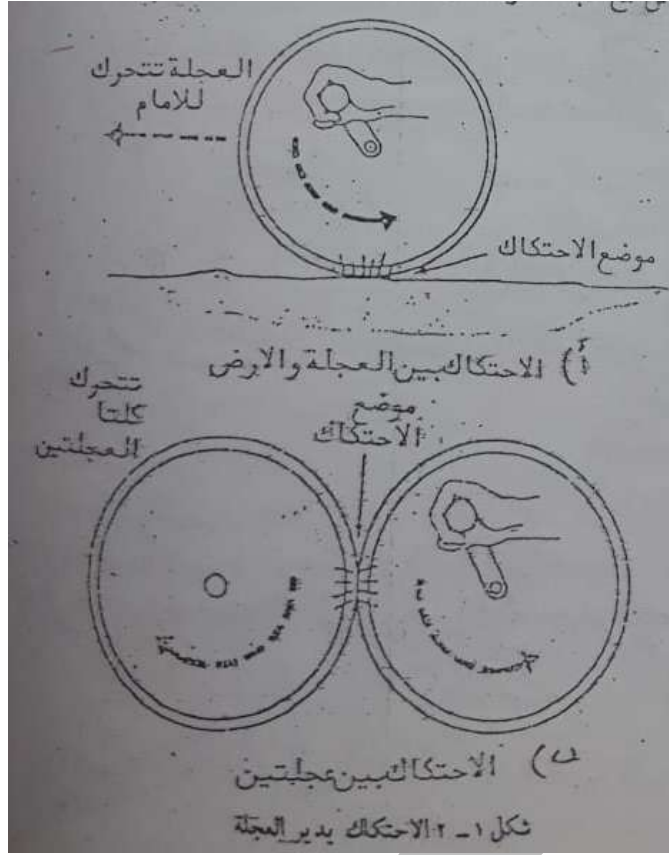 العجلة تتحرك
للامام
موضع الاحتكاك
أ) الاحتكاك بين العجلة والارض
تتحرك
كلتا
العجلتين
موضع
الاحتكاك
ب) الاحتكاك بين عجلتين
شكل ١ - ٢ الاحتكاك يدير العجلة